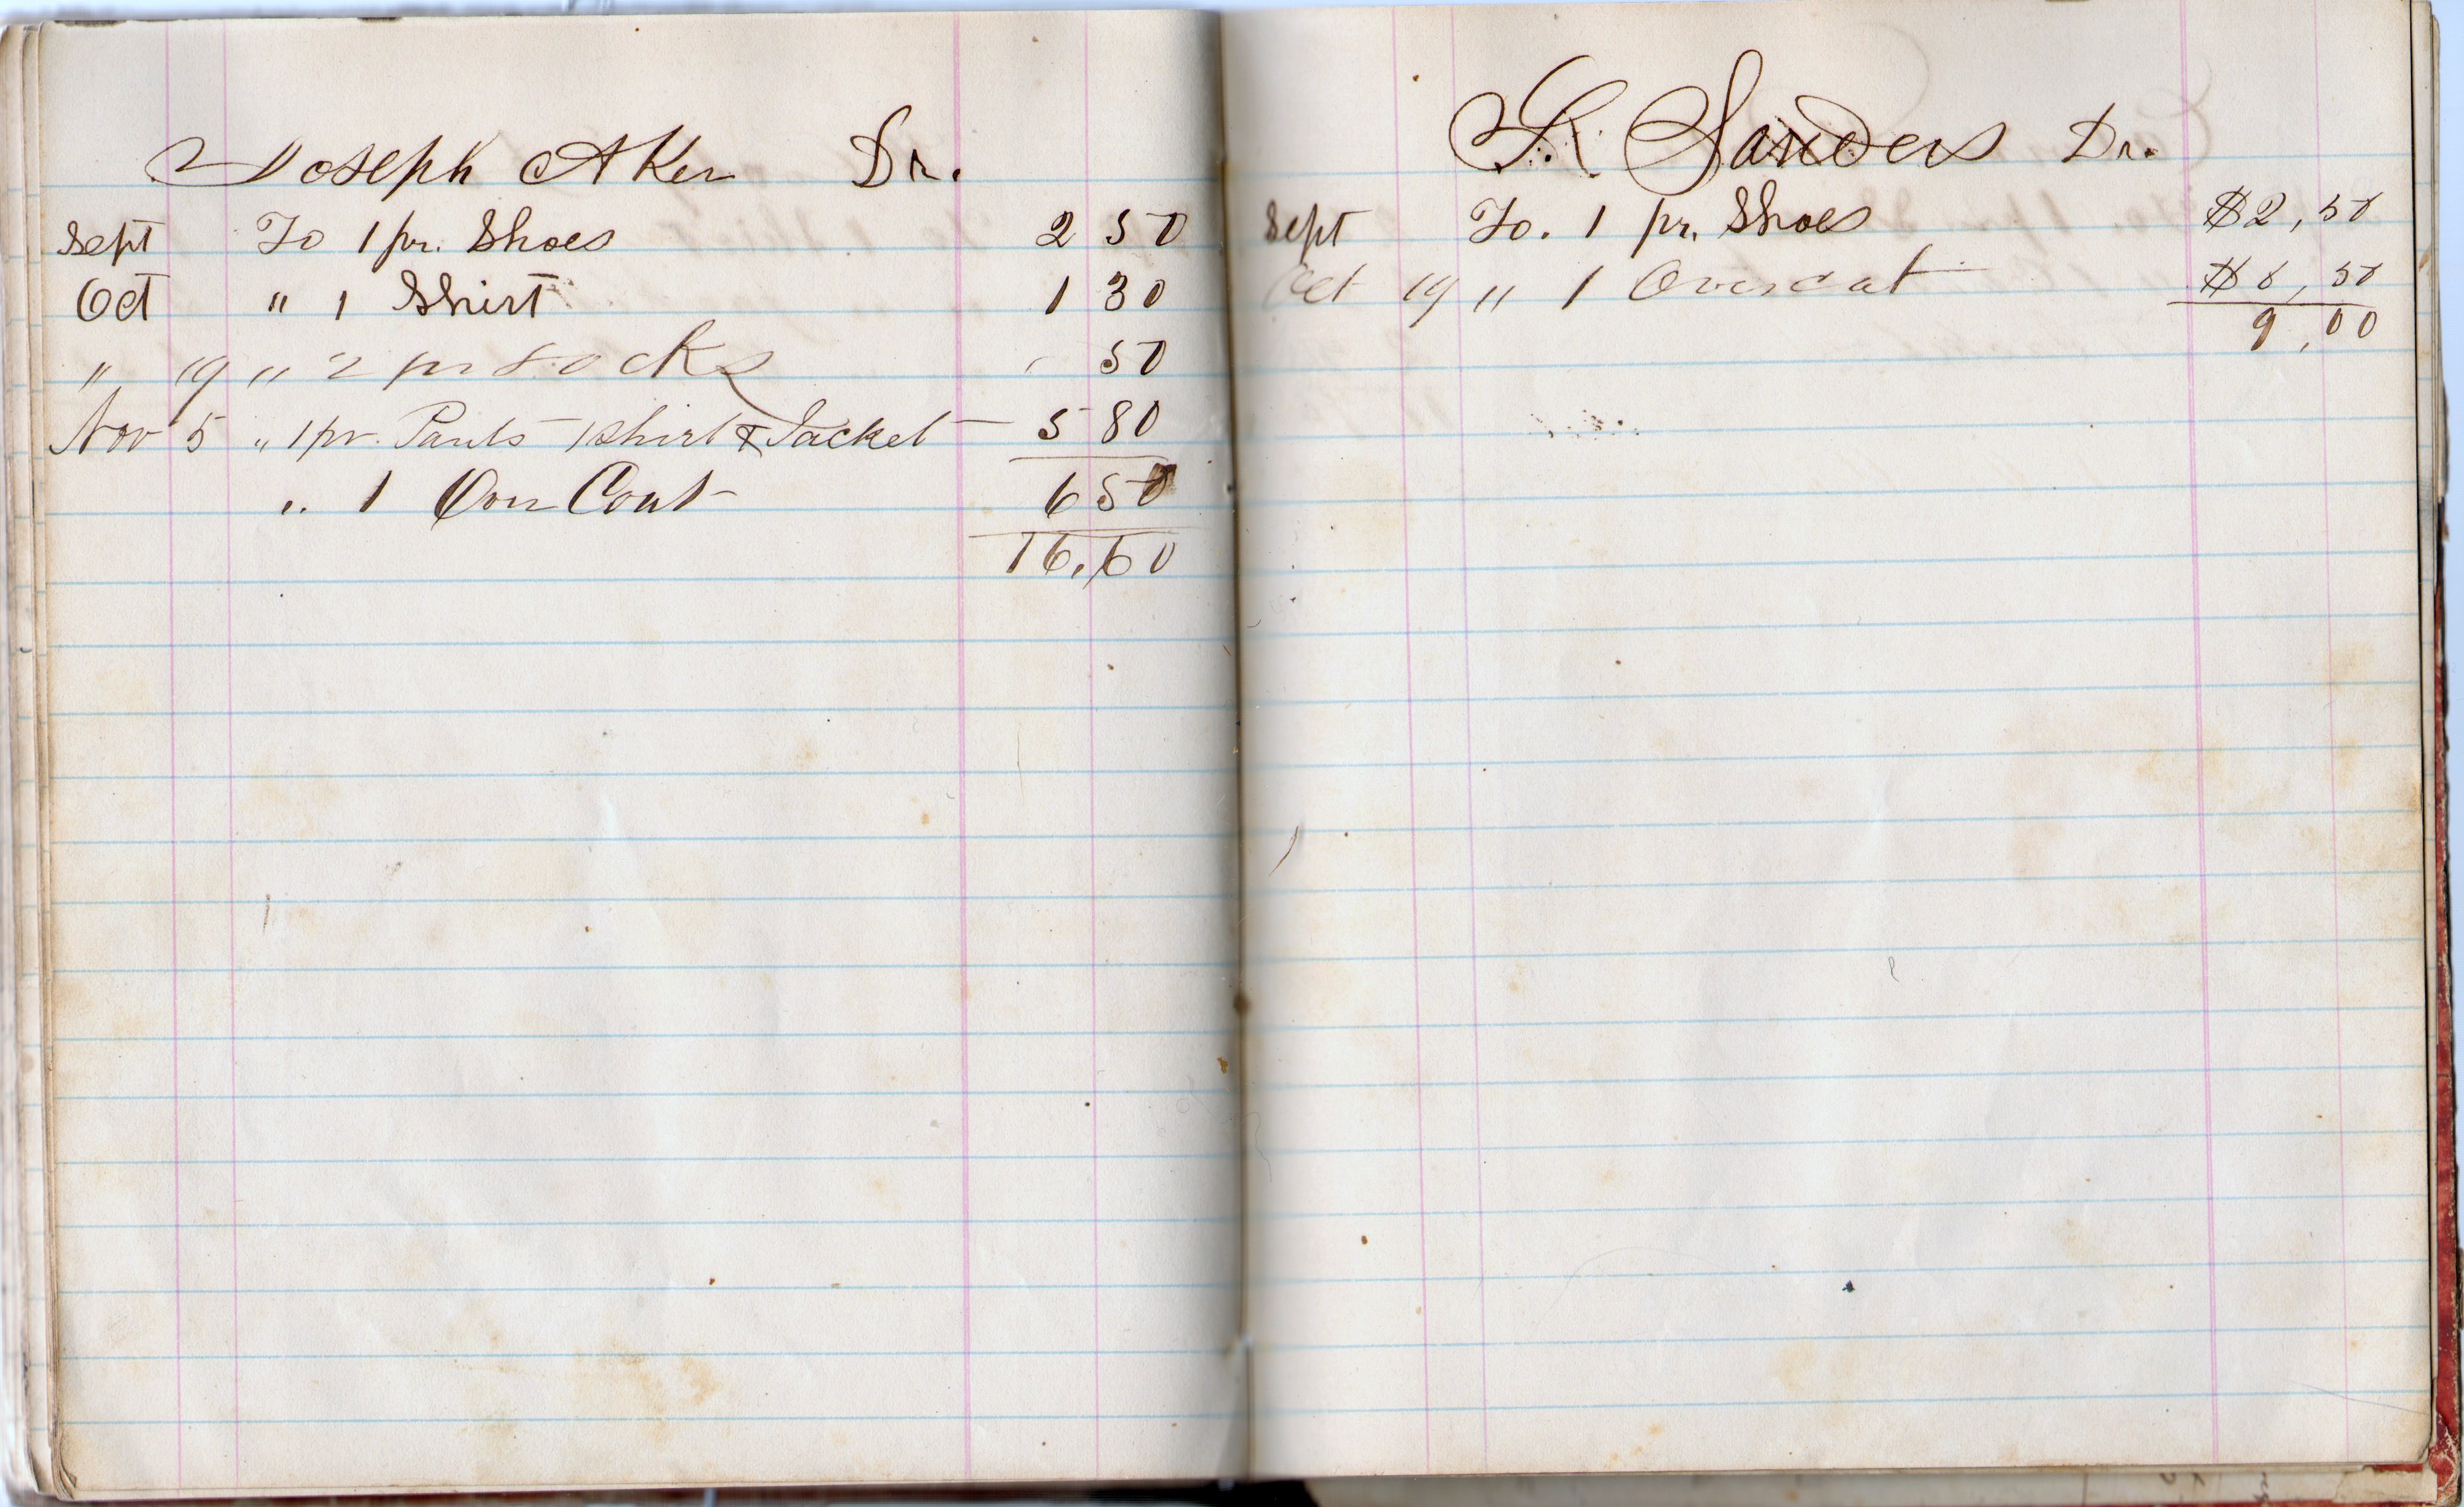 Joseph Aker Dr.
Sept To 1 pr. Shoes 2 50
Oct " 1 Shirt 1 30
" 19 " 2 pr socks 50
Nov 5 " 1 pr. Pants 1 shirt & Jacket 5 80
" 1 Over Coat 6 50
16.60
Sanders Dr.
Sept To. 1 pr. Shoes $2,50
Oct 19 " 1 Overcoat $6,50
9,00